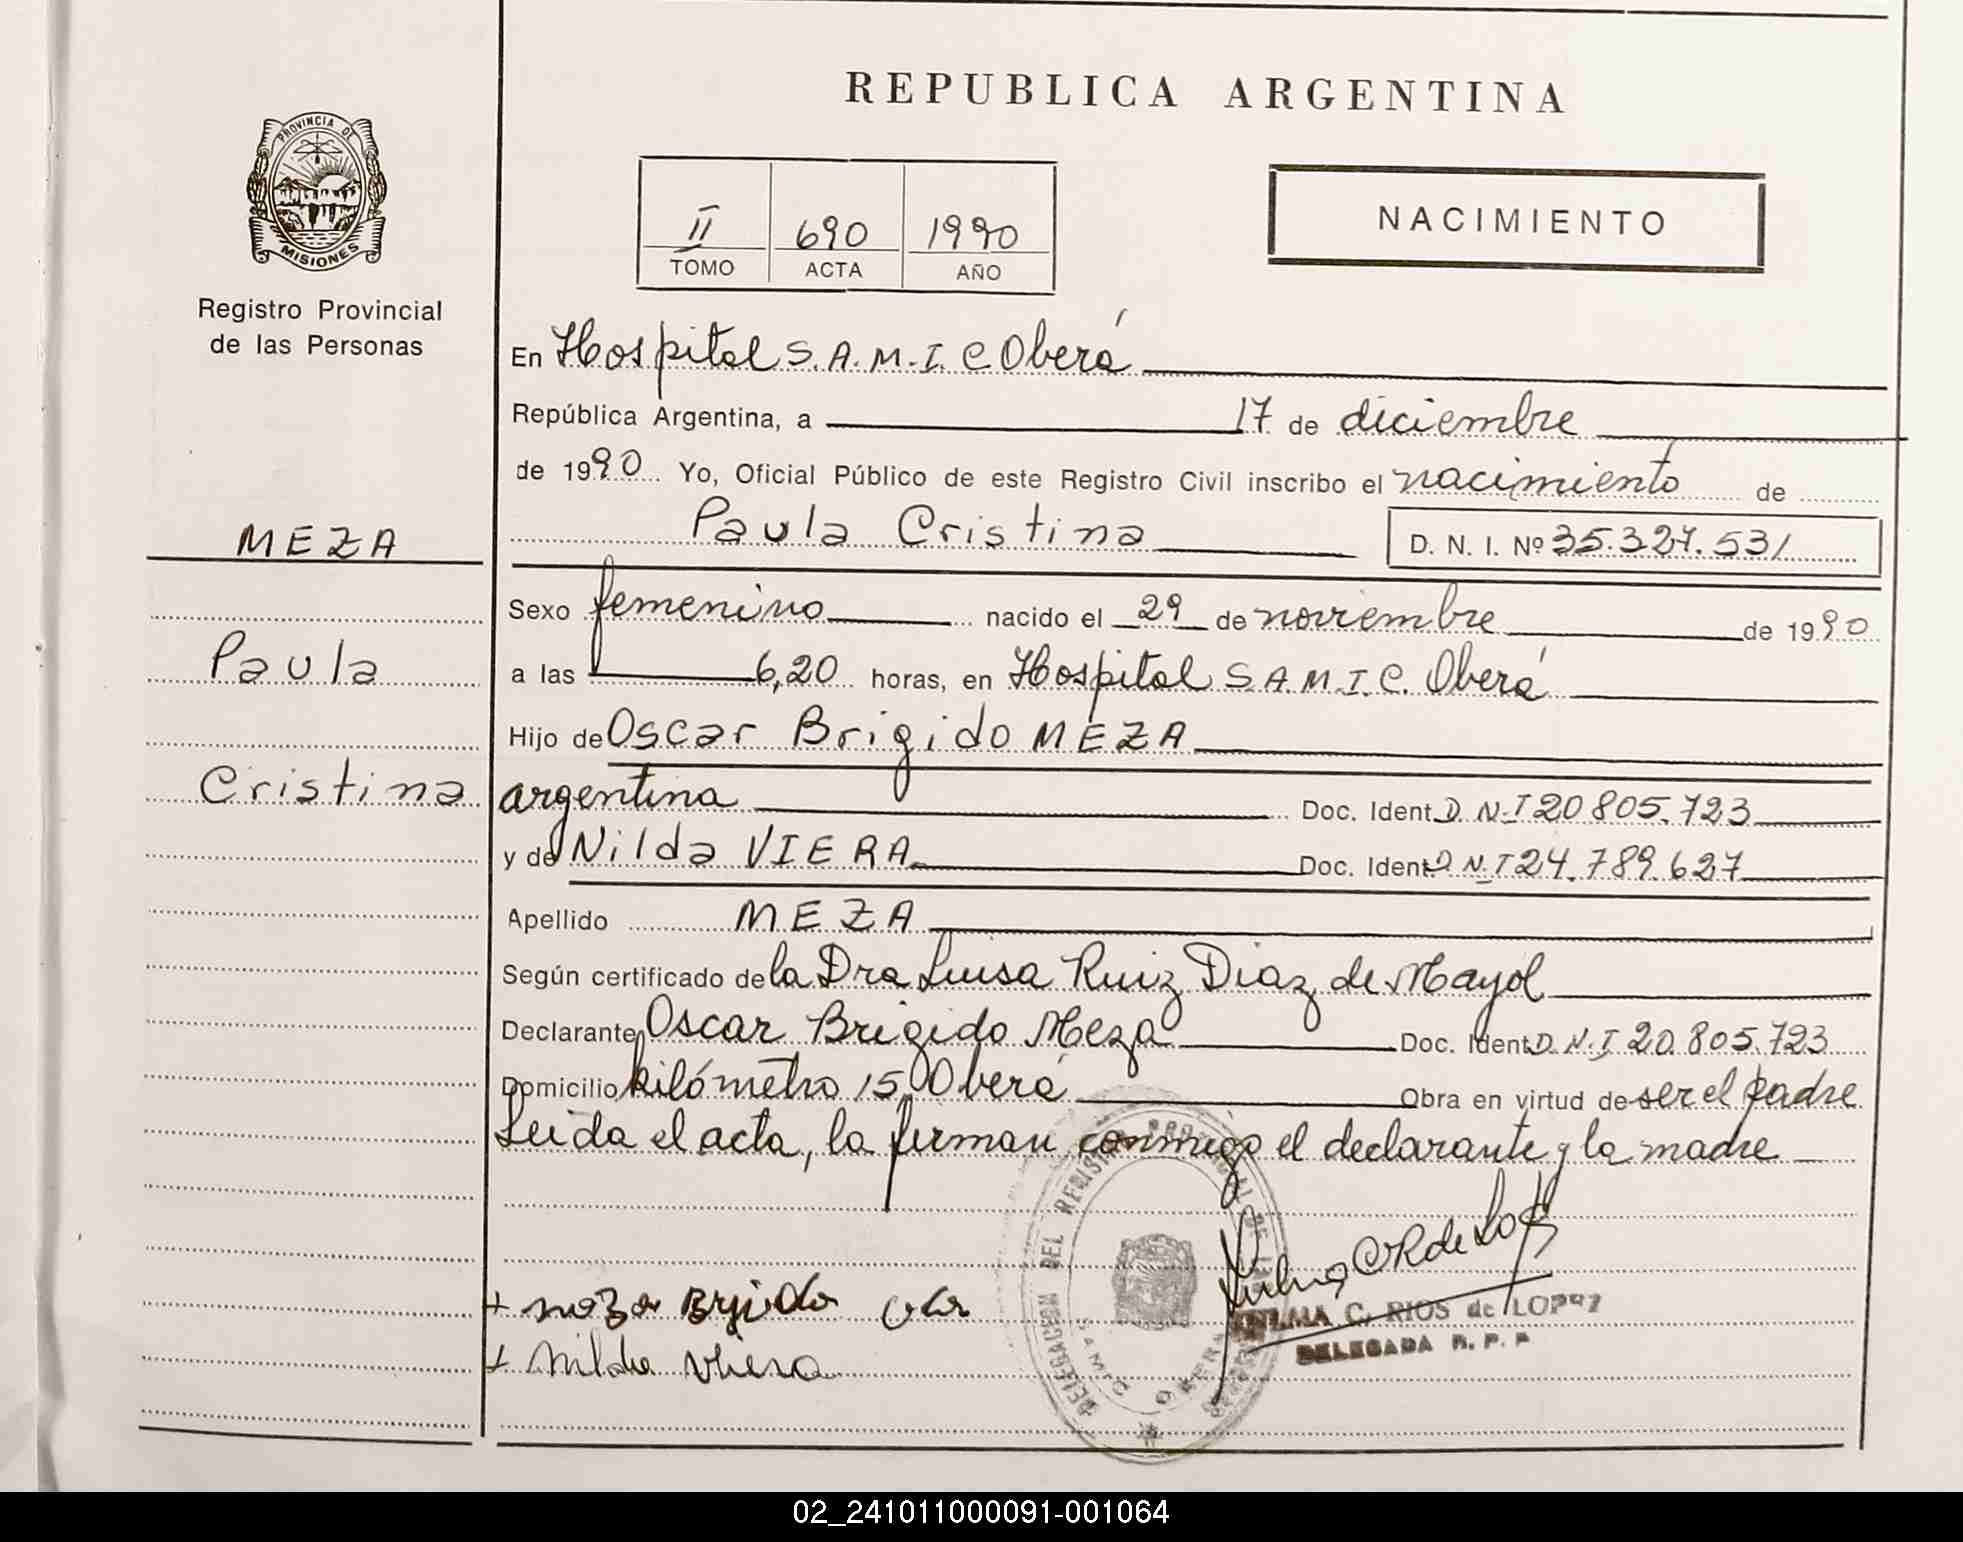 REPUBLICA ARGENTINA
PROVINCIA DE
MISIONES
Registro Provincial
de las Personas
II 690 1990
TOMO ACTA AÑO
NACIMIENTO
En Hospital S.A.M.I.C Oberá
República Argentina, a 17 de diciembre
de 1990 Yo, Oficial Público de este Registro Civil inscribo el nacimiento de
Paula Cristina D. N. I. Nº 35.327.531
MEZA
Paula
Cristina
Sexo femenino nacido el 29 de noviembre de 1990
a las 6,20 horas, en Hospital S.A.M.I.C. Oberá
Hijo de Oscar Brigido MEZA
argentina Doc. Ident. D.N.I 20 805.723
y de Nilda VIERA Doc. Ident. D.N.I 24.789.627
Apellido MEZA
Según certificado de la Dra Luisa Ruiz Diaz de Mayol
Declarante Oscar Brigido Meza Doc. Ident. D.N.I 20.805.723
Domicilio kilómetro 15 Oberá Obra en virtud de ser el padre
Leida el acta, la firman conmigo el declarante y la madre
DELEGACION DEL REGISTRO PROVINCIAL DE LAS
SAMIC OBERA
+ Nilda Viera
C. RIOS de LOPEZ
DELEGADA R. P. P.
02_241011000091-001064